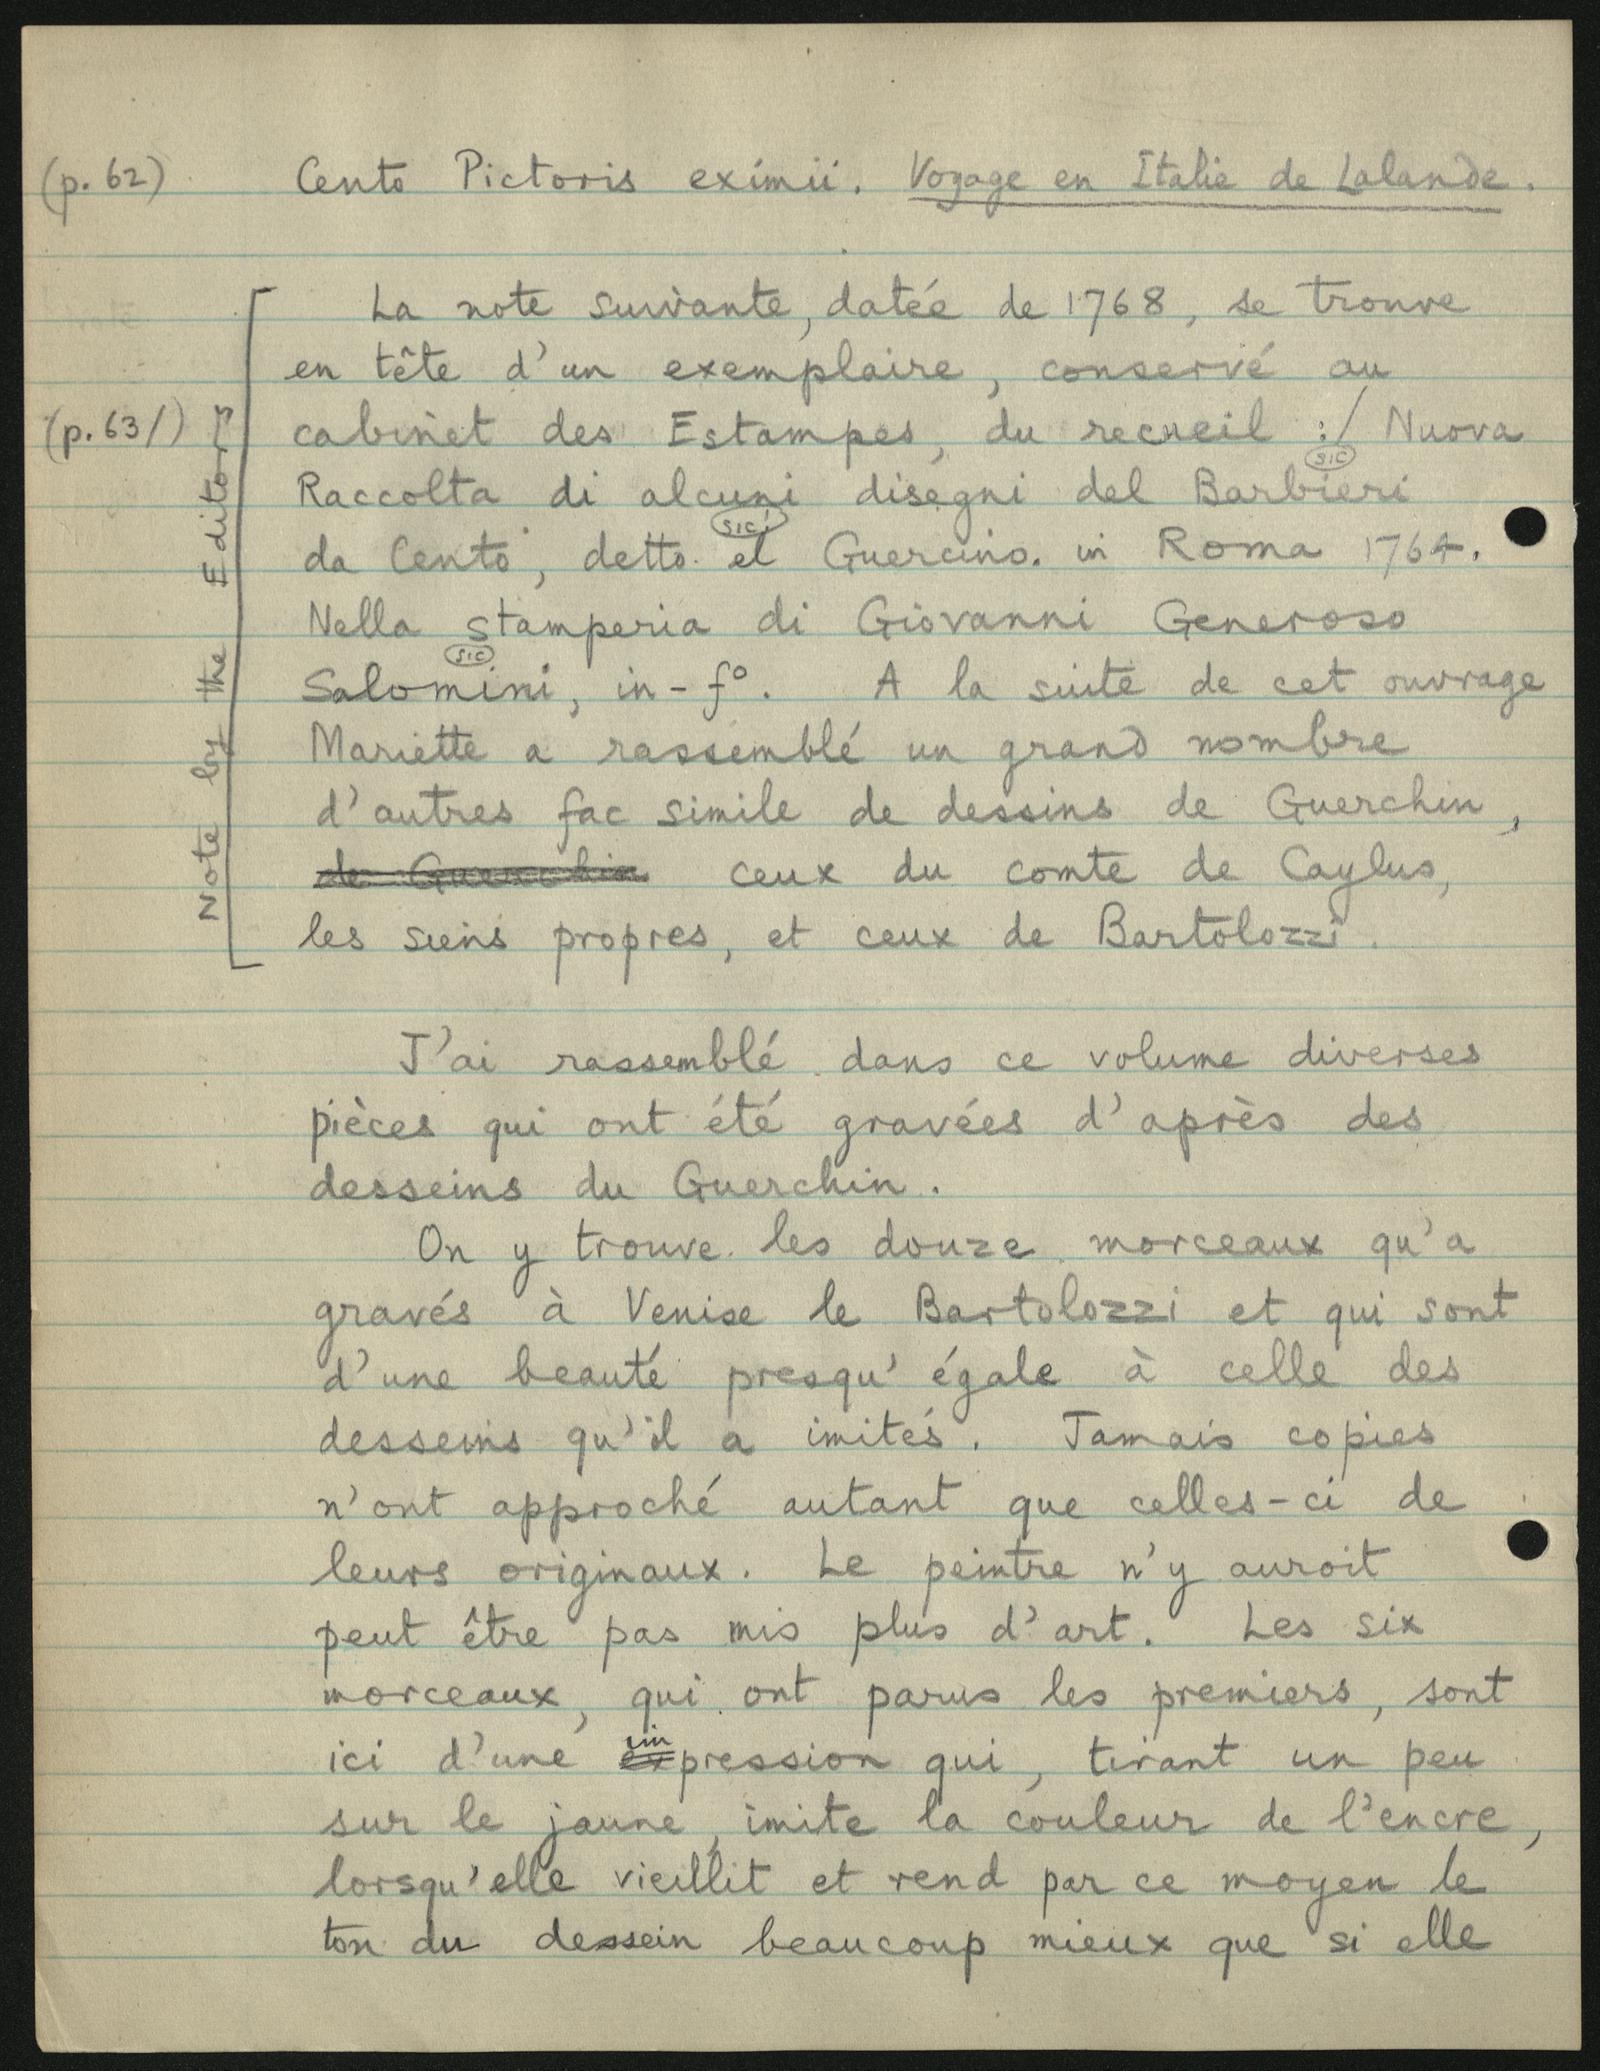 (p. 62) Cento Pictoris eximii. Voyage en Italie de Lalande.
La note suivante, datée de 1768, se trouve
en tête d'un exemplaire, conservé au
(p. 63/) cabinet des Estampes, du recueil :/ Nuova
(sic)
Raccolta di alcuni disegni del Barbieri
(sic!)
da Cento, detto el Guercino. in Roma 1764.
Nella stamperia di Giovanni Generoso
(sic)
Salomini, in-f°. A la suite de cet ouvrage
Mariette a rassemblé un grand nombre
d'autres fac simile de dessins de Guerchin,
de Guerchin ceux du comte de Caylus,
les siens propres, et ceux de Bartolozzi.
Note by the Editors
J'ai rassemblé dans ce volume diverses
pièces qui ont été gravées d'après des
desseins du Guerchin.
On y trouve les douze morceaux qu'a
gravés à Venise le Bartolozzi et qui sont
d'une beauté presqu'égale à celle des
desseins qu'il a imités. Jamais copies
n'ont approché autant que celles-ci de
leurs originaux. Le peintre n'y auroit
peut être pas mis plus d'art. Les six
morceaux, qui ont parus les premiers, sont
im
ici d'une expression qui, tirant un peu
sur le jaune, imite la couleur de l'encre,
lorsqu'elle vieillit et rend par ce moyen le
ton du dessein beaucoup mieux que si elle